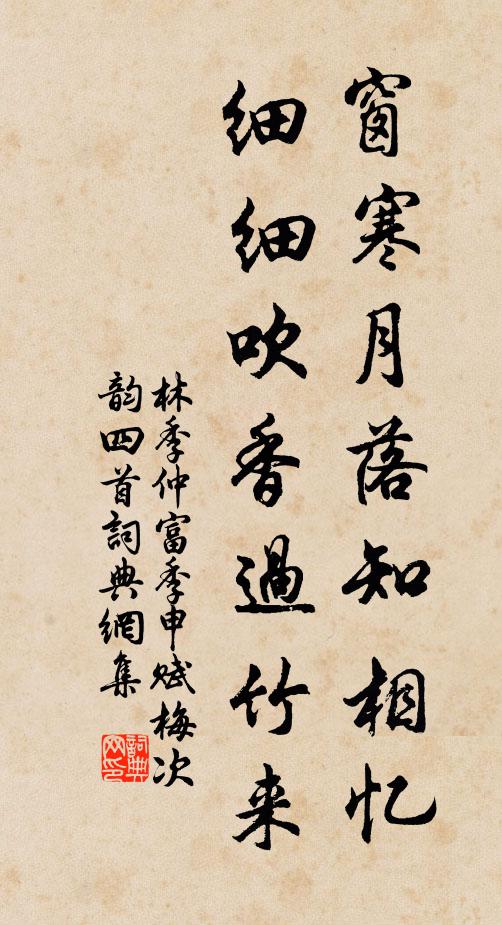 窗寒月落知相忆
细细吹香過竹来
林季仲富季申赋梅次
韵四首詞典網集
詞典网印